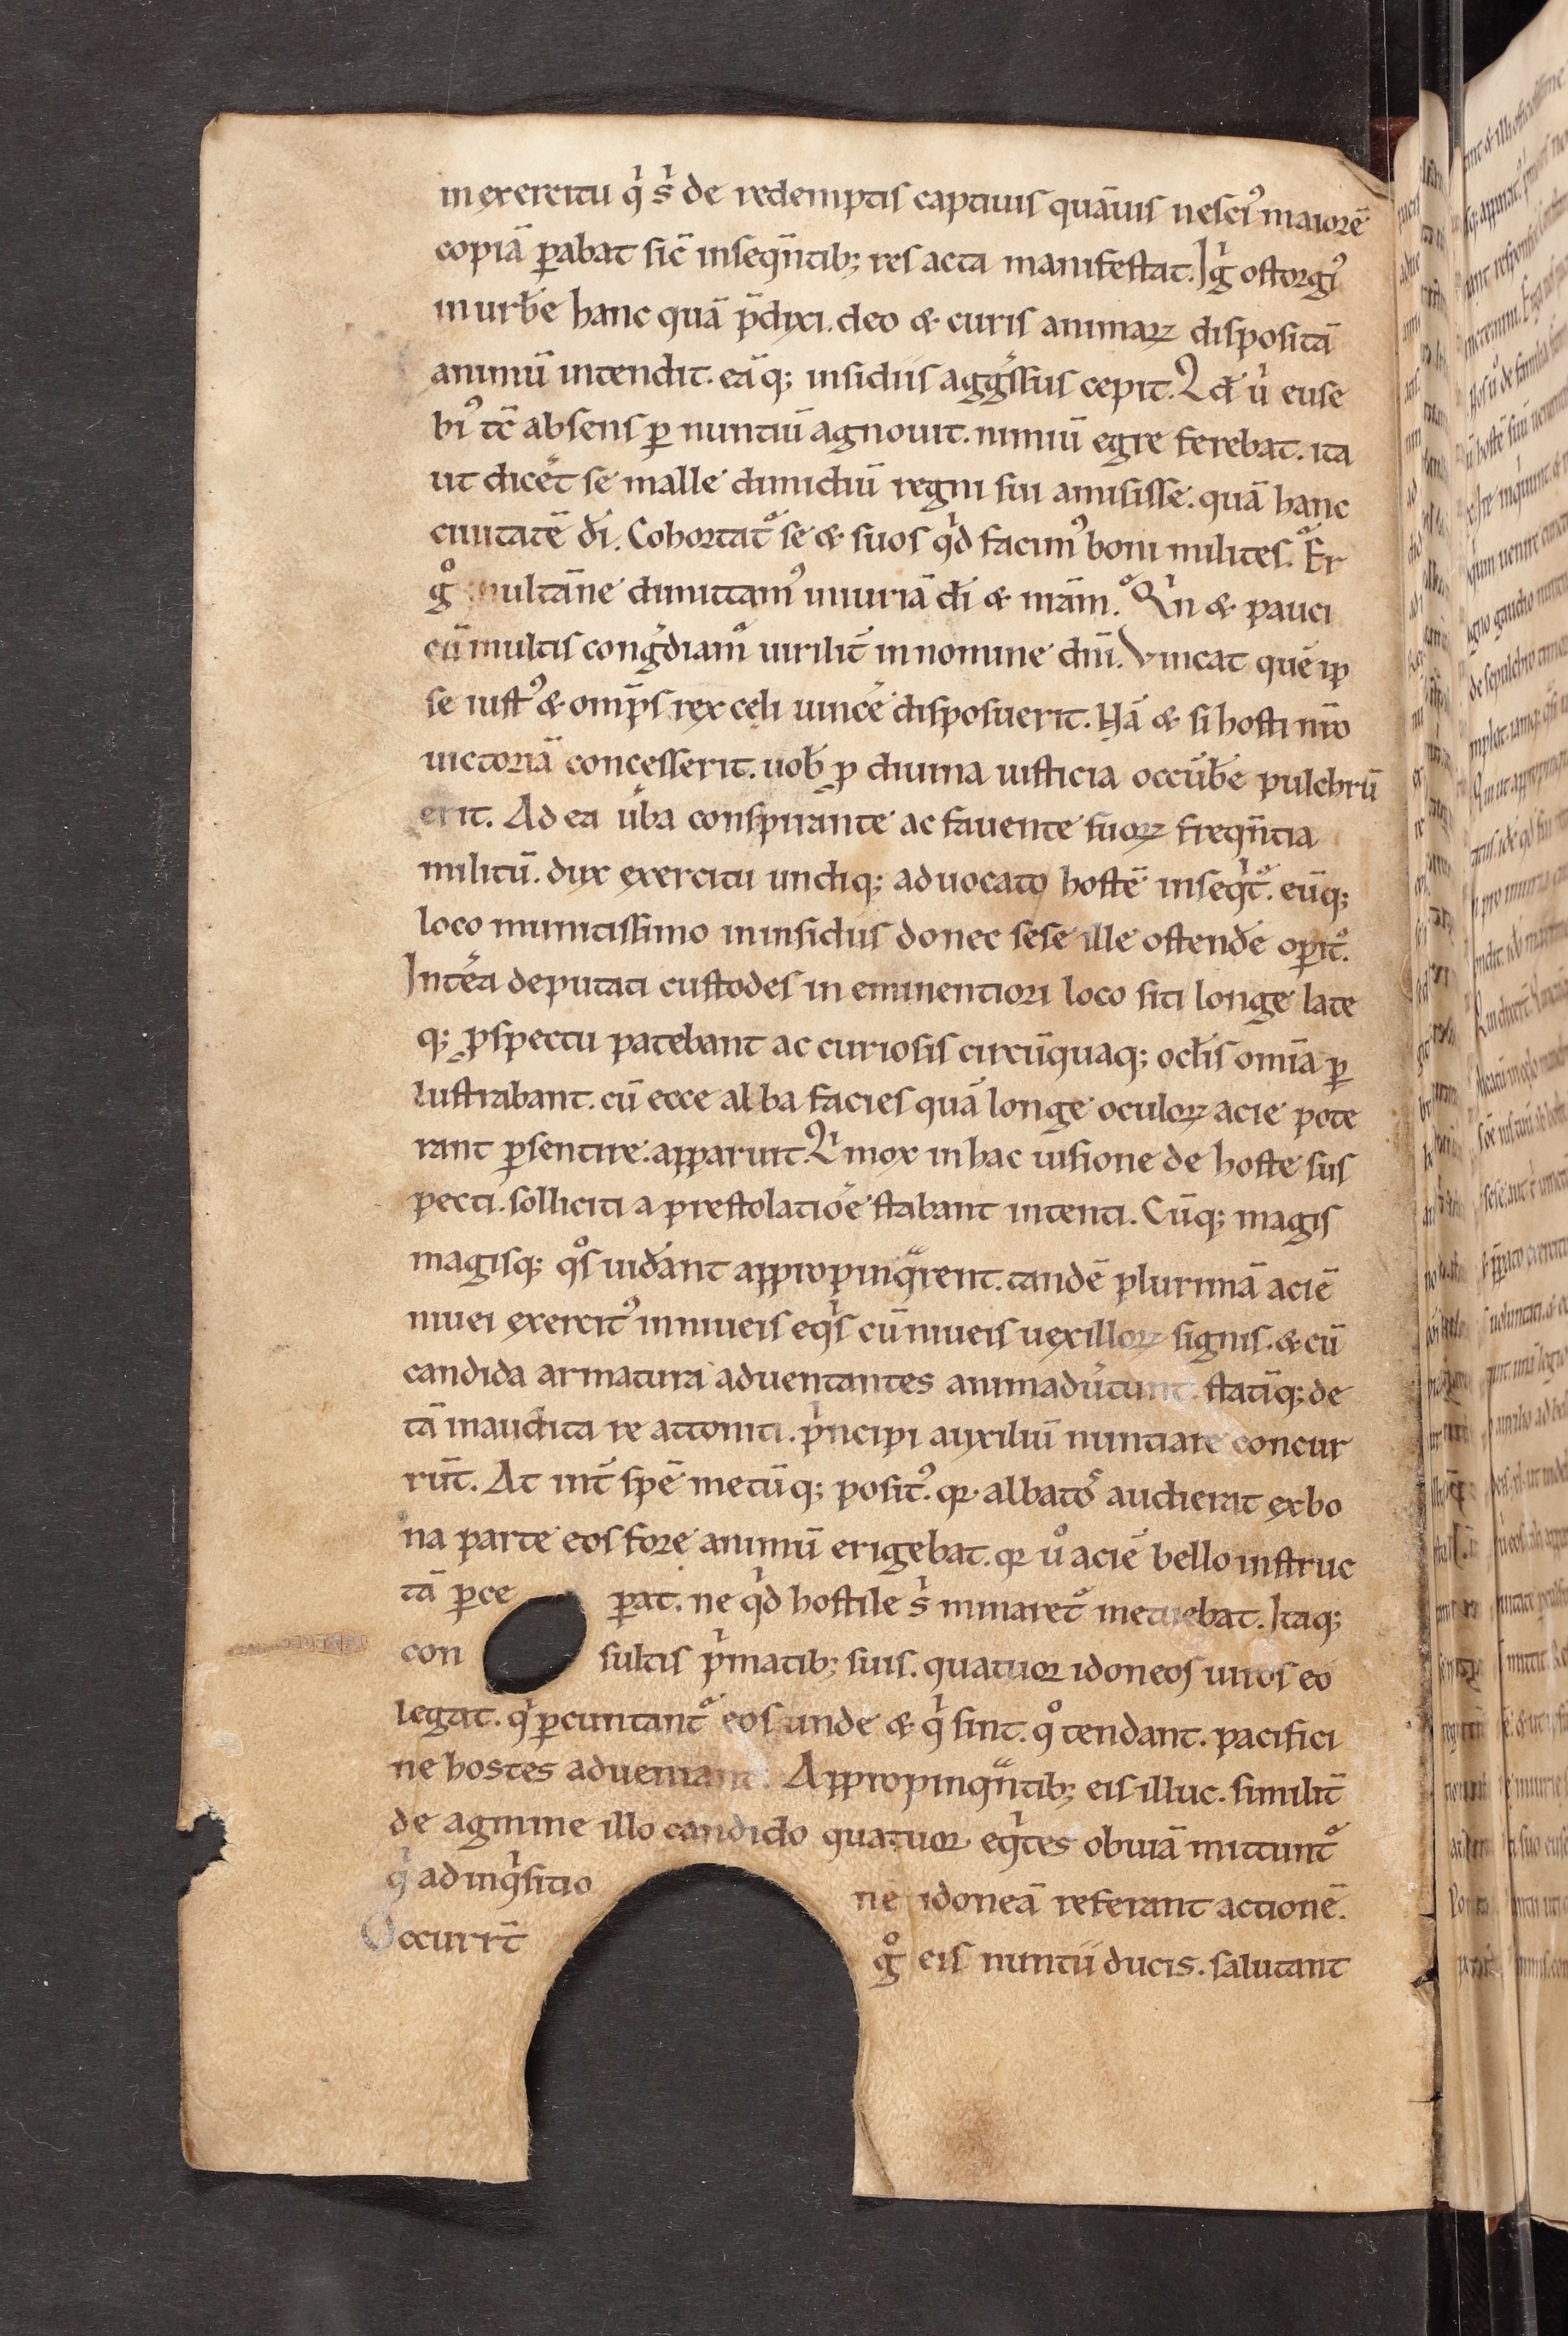 in exercitu qͥ sͥ de redemptis captiuis quāuis nesciꝰ maiorē
copiā ꝑabat sic̄ inseqn̄tib; res acta manifestat. Igͥ ostorgiꝰ
in urbē hanc quā p̄dixi. deo & curis animaꝝ dispositā
animū intendit. eāq; insidiis aggͤssus cepit. Qd̄ uͦ euse
biꝰ tc̄ absens ꝑ nuntiū agnouit. nimiū egre ferebat. ita
ut dicet̄ se malle dimidiū regni sui amisisse. quā hanc
ciuitatē dī. Cohortat᷑ se & suos qͥd facimꝰ boni milites. Er
gͦ multāne dimittamꝰ iniuriā dī & nr̄am. Qͥn & pauci
cū multis congͤdiamur uirilit̄ in nomine dn̄i. Vincat quē ip
se iustꝰ & omp̄s rex celi uincē disposuerit. Nā & si hosti nr̄o
uictoriā concesserit. uob̄ ꝓ diuina iusticia occūbe pulchrū
erit. Ad ea ūba conspirante ac fauente suoꝝ freqn̄tia
militū. dux exercitu undiq; aduocato hostē inseqͥt᷑. eūq;
loco munitissimo in insidiis donec sese ille ostendē oꝑit᷑.
Intēa deputati custodes in eminentiori loco siti longe late
q; ꝓspectu patebant ac curiosis circūquaq; oclis om̄ia ꝑ
lustrabant. cū ecce alba facies quā longe oculoꝝ acie pote
rant ꝑsentire. apparuit. Qͥ mox in hac uisione de hoste sus
pecti. solliciti a prestolatiōe stabant intenti. Cūq; magis
magisq; qͦs uidānt appropinqͣrent. tandē plurimā aciē
niuei exercitꝰ in niueis eqͥs cū niueis uexilloꝝ signis. & cū
candida armatura aduentantes animadūtunt. statīq; de
tā inaudita re attoniti. pͥncipi auxiliū nuntiare concur
rūt. At int̄ spē metūq; positꝰ. qꝛ albatoͬs audierat ex bo
na parte eos fore animū erigebat. qꝛ uͦ aciē bello instruc
tā ꝑce ꝑat. ne qͥd hostile sͥ minaret᷑ metuebat. Itaq;
con sultis pͥmatib; suis. quatuor idoneos uiros eo
legat. qͥ ꝑcuntant᷑ eos unde & qͥ sint. qͦ tendant. pacifici
ne hostes adueniant. Appropinqn̄tib; eis illuc. similit̄
de agmine illo candido quatuor eqͥtes obuiā mittunt᷑
qͥ ad inqͥsitio nē idoneā referant actionē.
Occurrt̄ gͦ eis nuntii ducis. salutant